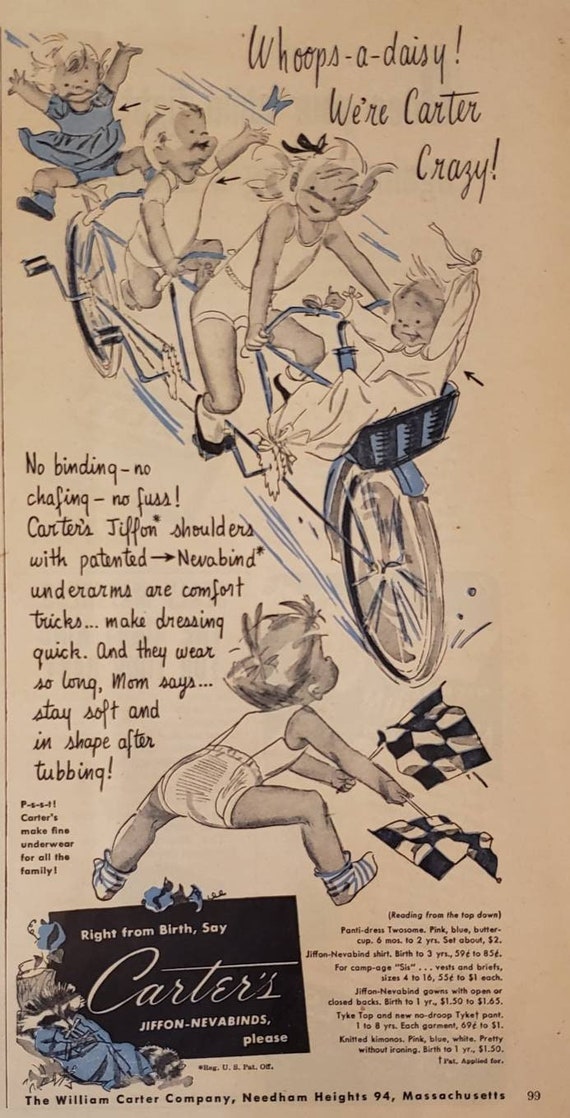 Whoops-a-daisy!
We're Carter
Crazy!
No binding - no
chafing - no fuss!
Carter's Jiffon* shoulders
with patented → Nevabind*
underarms are comfort
tricks... make dressing
quick. And they wear
so long, Mom says...
stay soft and
in shape after
tubbing!
P-s-s-t!
Carter's
make fine
underwear
for all the
family!
Right from Birth, Say
Carter's
JIFFON-NEVABINDS,
please
*Reg. U. S. Pat. Off.
(Reading from the top down)
Panti-dress Twosome. Pink, blue, butter-
cup. 6 mos. to 2 yrs. Set about, $2.
Jiffon-Nevabind shirt. Birth to 3 yrs., 59¢ to 85¢.
For camp-age "Sis" . . . vests and briefs,
sizes 4 to 16, 55¢ to $1 each.
Jiffon-Nevabind gowns with open or
closed backs. Birth to 1 yr., $1.50 to $1.65.
Tyke Top and new no-droop Tyke† pant.
1 to 8 yrs. Each garment, 69¢ to $1.
Knitted kimonos. Pink, blue, white. Pretty
without ironing. Birth to 1 yr., $1.50.
† Pat. Applied for.
The William Carter Company, Needham Heights 94, Massachusetts 99